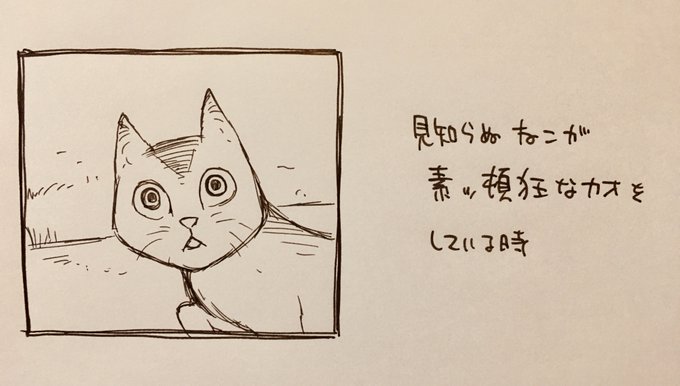 見知らぬねこが
素ッ頓狂なカオを
している時